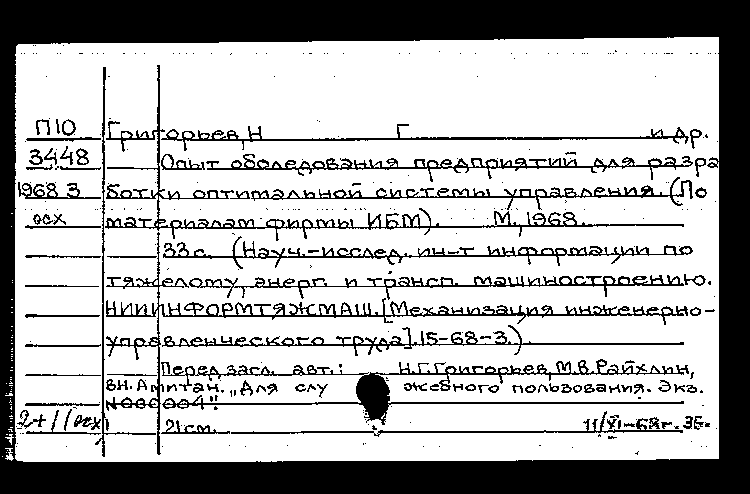 П10 Григорьев, Н Г и др.
3448 Опыт обследования предприятий для разра
1968 3 ботки оптимальной системы управления. (По
осх материалам фирмы ИБМ). М., 1968.
33с. (Науч.-исслед. ин-т информации по
тяжелому, энерг. и трансп. машиностроению.
НИИИНФОРМТЯЖМАШ. [Механизация инженерно-
управленческого труда]. 15-68-3.).
Перед загл. авт.: Н.Г. Григорьев, М.В. Райхлин,
В.Н. Амитан. "Для слу жебного пользования. Экз.
№000004".
2+1(осх) 21см. 11/XI-68г.